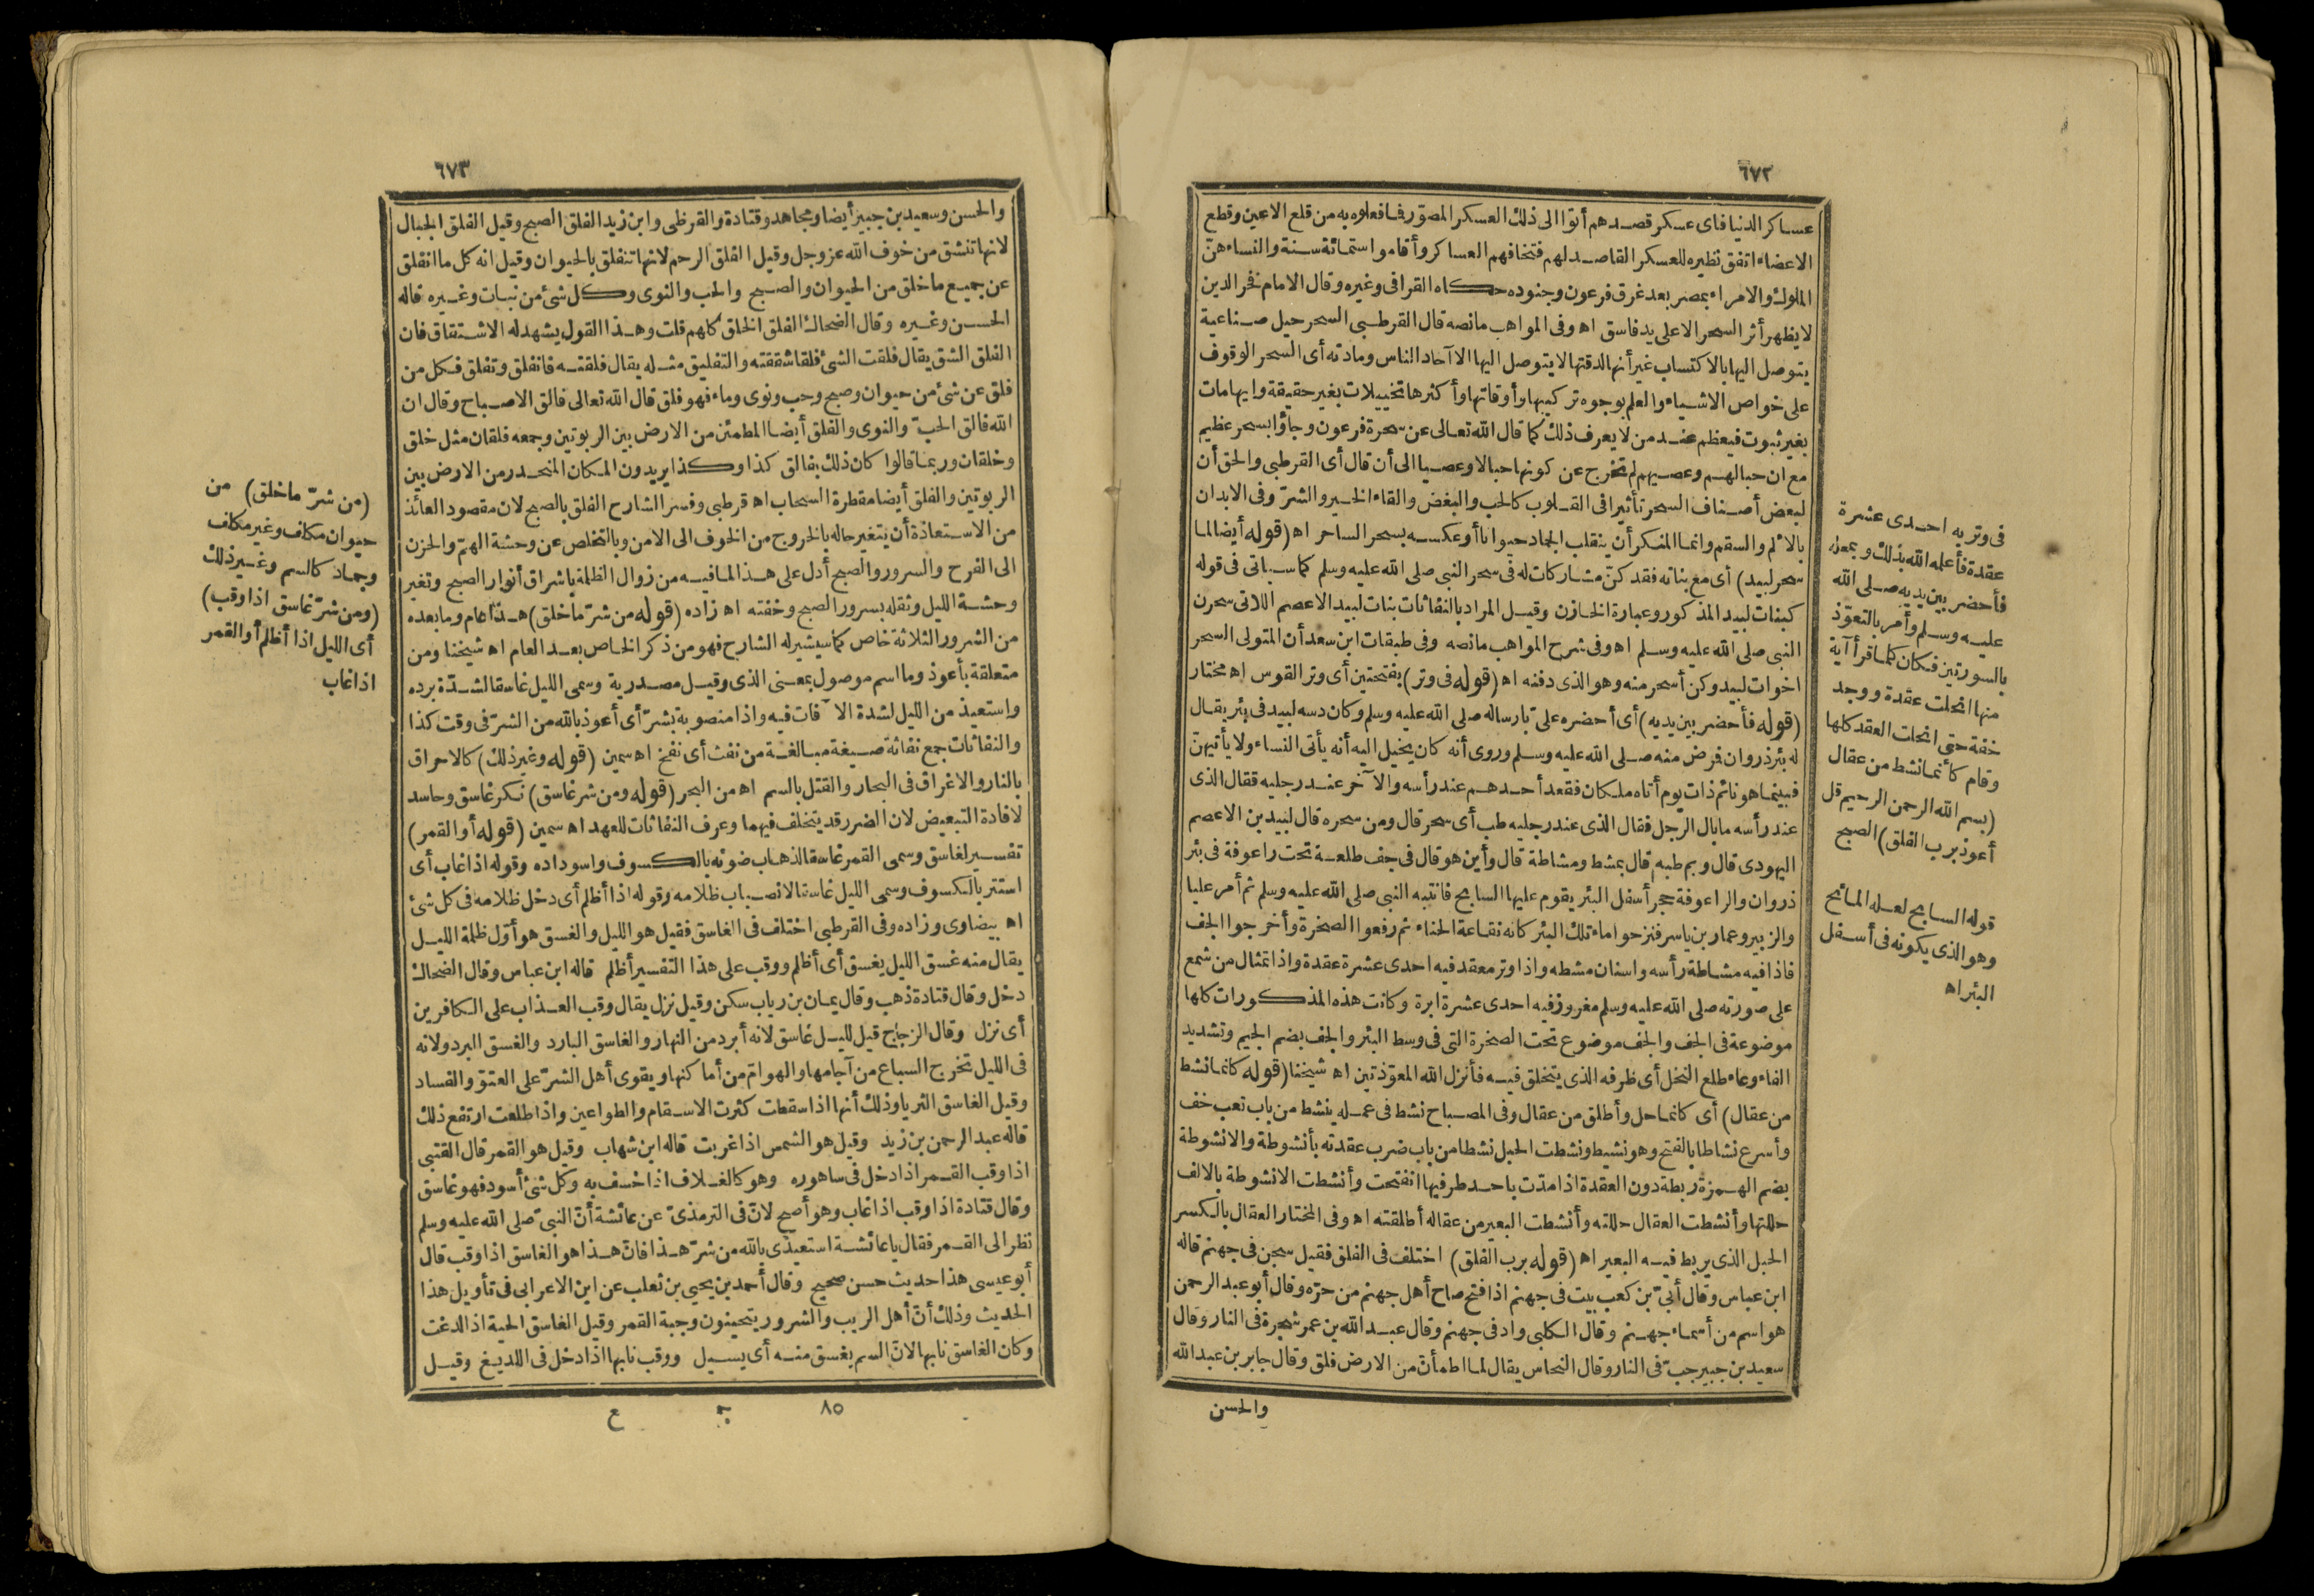 ٦٧٢
عساكر الدنيا فاى عسكر قصدهم أتوا الى ذلك العسكر المصوّر فما فعلوه به من قلع الاعين وقطع
الاعضاء اتفق نظيره للعسكر القاصد لهم فتخافهم العساكر وأقاموا ستمائة سنة والنساء هنّ
الملوك والامراء بمصر بعد غرق فرعون وجنوده حكاه القرافى وغيره وقال الامام فخر الدين
لا يظهر أثر السحر الا على يد فاسق اه وفى المواهب مانصه قال القرطبى السحر حيل صناعية
يتوصل اليها بالاكتساب غير أنها لدقتها لا يتوصل اليها الا آحاد الناس ومادته أى السحر الوقوف
على خواص الاشياء والعلم بوجوه تركيبها وأوقاتها وأكثرها تخييلات بغير حقيقة وايهامات
بغير ثبوت فيعظم عند من لا يعرف ذلك كما قال الله تعالى عن سحرة فرعون وجاؤا بسحر عظيم
مع ان حبالهم وعصيهم لم تخرج عن كونها حبالا وعصيا الى أن قال أى القرطبى والحق أن
لبعض أصناف السحر تأثيرا فى القلوب كالحب والبغض والقاء الخير والشرّ وفى الابدان
بالالم والسقم وانما المنكر أن ينقلب الجماد حيوانا أو عكسه بسحر الساحر اه (قوله أيضا لما
سحر لبيد) أى مع بناته فقد كنّ مشاركات له فى سحر النبى صلى الله عليه وسلم كما سياتى فى قوله
كبنات لبيد المذكور وعبارة الخازن وقيل المراد بالنفاثات بنات لبيد الاعصم اللاتى سحرن
النبى صلى الله عليه وسلم اه وفى شرح المواهب مانصه وفى طبقات ابن سعد أن المتولى السحر
اخوات لبيد وكن أسحر منه وهو الذى دفنه اه (قوله فى وتر) بفتحتين أى وتر القوس اه مختار
(قوله فأحضر بين يديه) أى أحضره على بارساله صلى الله عليه وسلم وكان دسه لبيد فى بئر يقال
له بئر ذروان فرض منه صلى الله عليه وسلم وروى أنه كان يخيل اليه أنه يأتى النساء ولا يأتيهنّ
فبينما هو نائم ذات يوم أتاه ملكان فقعد أحدهم عند رأسه والآخر عند رجليه فقال الذى
عند رأسه ما بال الرّجل فقال الذى عند رجليه طب أى سحر قال ومن سحره قال لبيد بن الاعصم
اليهودى قال وبم طبه قال بمشط ومشاطة قال وأين هو قال فى جف طلعة تحت راعوفة فى بئر
ذروان والراعوفة حجر أسفل البئر يقوم عليها السايح فانتبه النبى صلى الله عليه وسلم ثم أمر عليا
والزبير وعمار بن ياسر فنزحوا ماء تلك البئر كانه نقاعة الحناء ثم رفعوا الصخرة وأخرجوا الجف
فاذا فيه مشاطة رأسه واسنان مشطه واذا وتر معقد فيه احدى عشرة عقدة واذا تمثال من شمع
على صورته صلى الله عليه وسلم مغروز فيه احدى عشرة ابرة وكانت هذه المذكورات كلها
موضوعة فى الجف والجف موضوع تحت الصخرة التى فى وسط البئر والجف بضم الجيم وتشديد
الفاء وعاء طلع النخل أى ظرفه الذى يتخلق فيه فأنزل الله المعوّذتين اه شيخنا (قوله كانما نشط
من عقال) أى كانما حل وأطلق من عقال وفى المصباح نشط فى عمله ينشط من باب تعب خف
وأسرع نشاطا بالفتح وهو نشيط ونشطت الحبل نشطا من باب ضرب عقدته بأنشوطة والانشوطة
بضم الهمزة ربطة دون العقدة اذا مدّت باحد طرفيها انفتحت وأنشطت الانشوطة بالالف
حللتها وأنشطت العقال حللته وأنشطت البعير من عقاله أطلقته اه وفى المختار العقال بالكسر
الحبل الذى يربط فيه البعير اه (قوله برب الفلق) اختلف فى الفلق فقيل سجن فى جهنم قاله
ابن عباس وقال أبىّ بن كعب بيت فى جهنم اذا فتح صاح أهل جهنم من حرّه وقال أبو عبد الرحمن
هو اسم من أسماء جهنم وقال الكلبى واد فى جهنم وقال عبد الله بن عمر شجرة فى النار وقال
سعيد بن جبير جبّ فى النار وقال النحاس يقال لما اطمأن من الارض فلق وقال جابر بن عبد الله
والحسن
فى وتر به احدى عشرة
عقدة فأعلمه الله بذلك وبمحله
فأحضر بين يديه صلى الله
عليه وسلم وأمر بالتعوّذ
بالسورتين فكان كلما قرأ آية
منها انحلت عقدة ووجد
خفة حتى انحلت العقد كلها
وقام كأنما نشط من عقال
(بسم الله الرحمن الرحيم قل
أعوذ برب الفلق) الصبح
قوله السايح لعله المائح
وهو الذى يكون فى أسفل
البئر اه
٦٧٣
والحسن وسعيد بن جبير أيضا ومجاهد وقتادة والقرظى وابن زيد الفلق الصبح وقيل الفلق الجبال
لانها تنشق من خوف الله عز وجل وقيل الفلق الرحم لانها تنفلق بالحيوان وقيل انه كل ما انفلق
عن جميع ما خلق من الحيوان والصبح والحب والنوى وكل شئ من نبات وغيره قاله
الحسن وغيره وقال الضحاك الفلق الخلق كلهم قلت وهذا القول يشهد له الاشتقاق فان
الفلق الشق يقال فلقت الشئ فلقا شققته والتفليق مثله يقال فلقته فانفلق وتفلق فكل من
فلق عن شئ من حيوان وصبح وحب ونوى وماء فهو فلق قال الله تعالى فالق الاصباح وقال ان
الله فالق الحبّ والنوى والفلق أيضا المطمئن من الارض بين الربوتين وجمعه فلقان مثل خلق
وخلقان وربما قالوا كان ذلك بفالق كذا وكذا يريدون المكان المنحدر من الارض بين
الربوتين والفلق أيضا مقطرة السحاب اه قرطبى وفسر الشارح الفلق بالصبح لان مقصود العائذ
من الاستعاذة أن يتغير حاله بالخروج من الخوف الى الامن وبالتخلص عن وحشة الهمّ والحزن
الى الفرح والسرور والصبح أدل على هذا لما فيه من زوال الظلمة باشراق أنوار الصبح وتغير
وحشة الليل وثقله بسرور الصبح وخفته اه زاده (قوله من شرّ ما خلق) هذا عام وما بعده
من الشرور الثلاثة خاص كما سيشير له الشارح فهو من ذكر الخاص بعد العام اه شيخنا ومن
متعلقة بأعوذ وما اسم موصول بمعنى الذى وقيل مصدرية وسمى الليل غاسقا لشدّة برده
واستعيذ من الليل لشدة الآفات فيه واذا منصوبة بشرّ أى أعوذ بالله من الشرّ فى وقت كذا
والنفاثات جمع نفاثة صيغة مبالغة من نفث أى نفخ اه سمين (قوله وغير ذلك) كالاحراق
بالنار والاغراق فى البحار والقتل بالسم اه من البحر (قوله ومن شر غاسق) نكر غاسق وحاسد
لافادة التبعيض لان الضرر قد يتخلف فيهما وعرف النفاثات للعهد اه سمين (قوله أو القمر)
تفسير لغاسق وسمى القمر غاسقا لذهاب ضوئه بالكسوف واسوداده وقوله اذا غاب أى
استتر بالكسوف وسمى الليل غاسقا لانصباب ظلامه وقوله اذا أظلم أى دخل ظلامه فى كل شئ
اه بيضاوى وزاده وفى القرطبى اختلف فى الغاسق فقيل هو الليل والغسق هو أوّل ظلمة الليل
يقال منه غسق الليل يغسق أى أظلم ووقب على هذا التفسير أظلم قاله ابن عباس وقال الضحاك
دخل وقال قتادة ذهب وقال يمان بن رياب سكن وقيل نزل يقال وقب العذاب على الكافرين
أى نزل وقال الزجاج قيل لليل غاسق لانه أبرد من النهار والغاسق البارد والغسق البرد ولانه
فى الليل تخرج السباع من آجامها والهوامّ من أماكنها ويقوى أهل الشرّ على العتوّ والفساد
وقيل الغاسق الثريا وذلك أنها اذا سقطت كثرت الاسقام والطواعين واذا طلعت ارتفع ذلك
قاله عبد الرحمن بن زيد وقيل هو الشمس اذا غربت قاله ابن شهاب وقيل هو القمر قال القتبى
اذا وقب القمر اذا دخل فى ساهوره وهو كالغلاف اذا خسف به وكل شئ أسود فهو غاسق
وقال قتادة اذا وقب اذا غاب وهو أصح لانّ فى الترمذىّ عن عائشة أنّ النبىّ صلى الله عليه وسلم
نظر الى القمر فقال يا عائشة استعيذى بالله من شرّ هذا فانّ هذا هو الغاسق اذا وقب قال
أبو عيسى هذا حديث حسن صحيح وقال أحمد بن يحيى بن ثعلب عن ابن الاعرابى فى تأويل هذا
الحديث وذلك أنّ أهل الريب والشرور يتحينون وجبة القمر وقيل الغاسق الحية اذا لدغت
وكان الغاسق نابها لانّ السم يغسق منه أى يسيل ووقب نابها اذا دخل فى اللديغ وقيل
٨٥ ع
(من شرّ ما خلق) من
حيوان مكلف وغير مكلف
وجماد كالسم وغير ذلك
(ومن شرّ غاسق اذا وقب)
أى الليل اذا أظلم أو القمر
اذا غاب